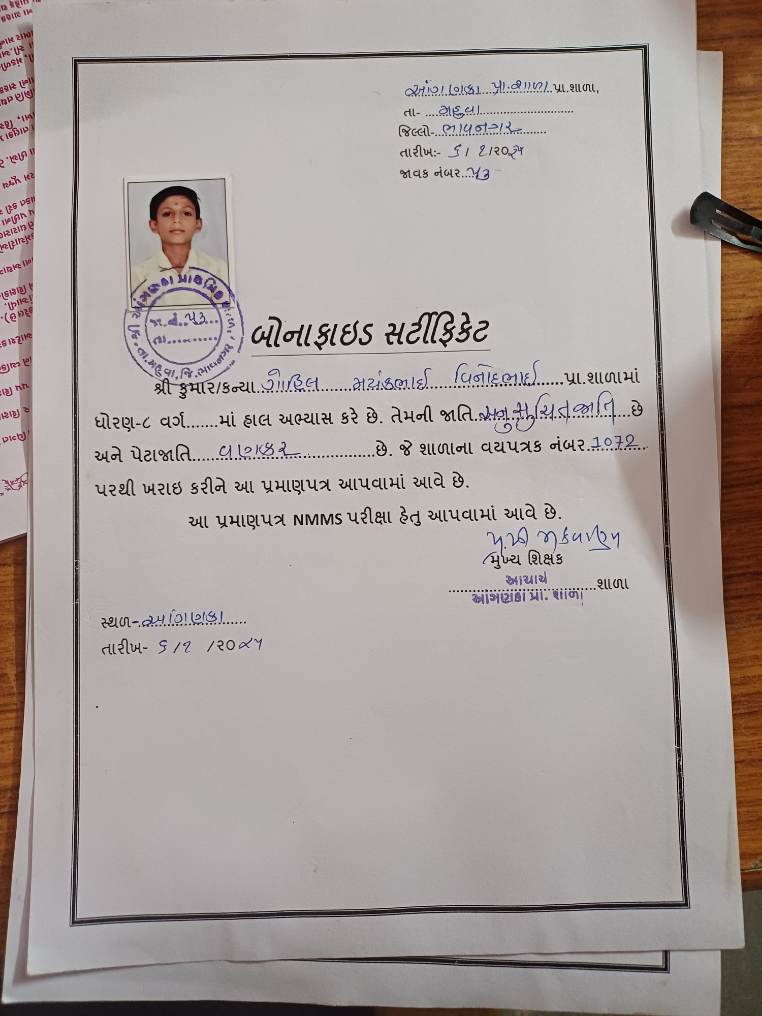 આંગણકા પ્રા.શાળા પ્રા.શાળા,
તા- ...મહુવા...
જિલ્લો-..ભાવનગર......
તારીખ:- ૬/ ૧/૨૦૨૫
જાવક નંબર...૫૩
જા.નં...૫૩...
તા..........
બોનાફાઇડ સર્ટીફિકેટ
શ્રી કુમાર/કન્યા ગોહિલ મયંકભાઈ વિનોદભાઈ પ્રા.શાળામાં
ધોરણ-૮ વર્ગ.......માં હાલ અભ્યાસ કરે છે. તેમની જાતિ..અનુસુચિતજાતિ...છે
અને પેટાજાતિ.....વણકર..................છે. જે શાળાના વયપત્રક નંબર.1072..
પરથી ખરાઇ કરીને આ પ્રમાણપત્ર આપવામાં આવે છે.
આ પ્રમાણપત્ર NMMS પરીક્ષા હેતુ આપવામાં આવે છે.
મુખ્ય શિક્ષક
આચાર્ય
આંગણકા પ્રા. શાળા
શાળા
સ્થળ-આંગણકા.....
તારીખ- ૬/૧ /૨૦૨૫